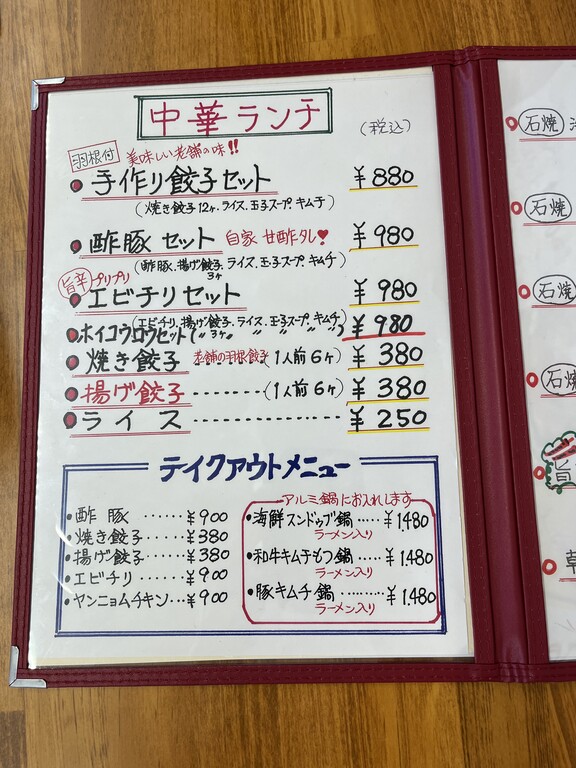 中華ランチ
(税込)
羽根付 美味しい老舗の味!!
手作り餃子セット ¥880
(焼き餃子12ヶ.ライス.玉子スープ.キムチ)
酢豚セット 自家 甘酢タレ♥ ¥980
(酢豚.揚げ餃子3ヶ.ライス.玉子スープ.キムチ)
旨辛 プリプリ
エビチリセット ¥980
(エビチリ.揚げ餃子3ヶ.ライス.玉子スープ.キムチ)
ホイコウロウセット(〃 〃 〃 〃 〃) ¥980
焼き餃子 老舗の羽根餃子 (1人前6ヶ) ¥380
揚げ餃子 (1人前6ヶ) ¥380
ライス ¥250
テイクアウトメニュー
・酢豚 ¥900
・焼き餃子 ¥380
・揚げ餃子 ¥380
・エビチリ ¥900
・ヤンニョムチキン ¥900
アルミ鍋にお入れします
・海鮮スンドゥブ鍋 ¥1480
ラーメン入り
・和牛キムチもつ鍋 ¥1.480
ラーメン入り
・豚キムチ鍋 ¥1.480
ラーメン入り
石焼
石焼
石焼
石焼
旨